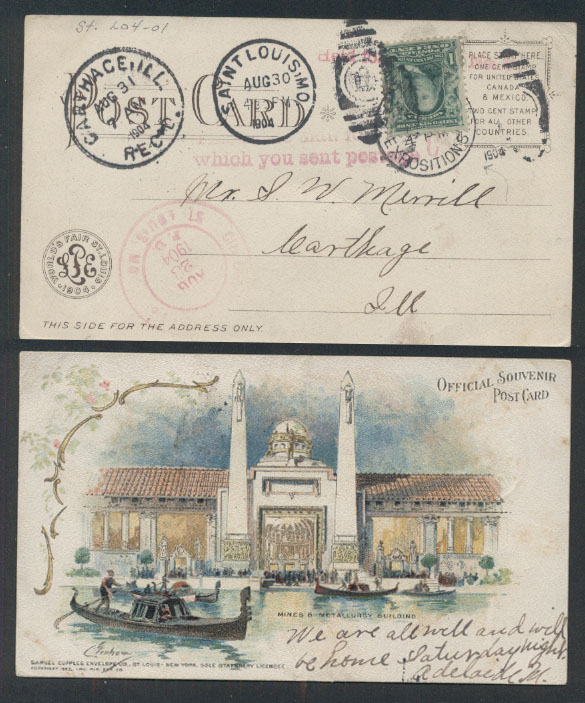 St. L04-01
POST CARD
CARTHAGE, ILL.
AUG 31
1904
REC'D.
SAINT LOUIS, MO.
AUG 30
1904
EXPOSITION S
1904
PLACE STAMP HERE
ONE CENT STAMP
FOR UNITED STATES
CANADA
& MEXICO.
TWO CENT STAMP
FOR ALL OTHER
COUNTRIES.
which you sent
Mr. S. W. Merrill
Carthage
Ill
ST LOUIS MO
AUG
1904
WORLD'S FAIR ST. LOUIS
LPE
1904
THIS SIDE FOR THE ADDRESS ONLY.
OFFICIAL SOUVENIR
POST CARD
MINES & METALLURGY BUILDING
We are all well and will
be home Saturday night.
Adelaide M.
SAMUEL CUPPLES ENVELOPE CO., ST LOUIS - NEW YORK, SOLE STATIONERY LICENSEE